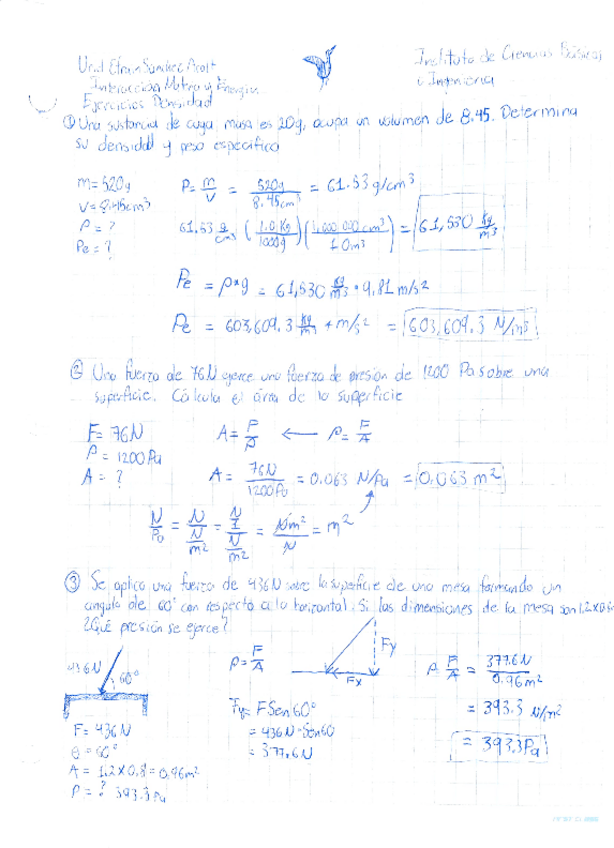 Uriel Efrain Sanchez
Instituto de Ciencias Básicas
e Ingeniería
Interacción Materia y Energía
Ejercicios Densidad
① Una sustancia de cuya masa es 20g, ocupa un volumen de 8.45. Determina
su densidad y peso especifico
m = 520g
V = 8.45cm³
ρ = ?
Pe = ?
ρ = m/v = 520g/8.45cm³ = 61.53 g/cm³
61.53 g/cm³ (1.0 Kg/1000g)(1,000,000 cm³/1.0m³) = 61,530 Kg/m³
Pe = ρ*g = 61,530 Kg/m³ * 9.81 m/s²
Pe = 603,609.3 Kg/m³ * m/s² = 603,609.3 N/m³
② Una fuerza de 76N ejerce una fuerza de presión de 1200 Pa sobre una
superficie. Calcula el área de la superficie
F = 76N
P = 1200Pa
A = ?
A = F/P ← P = F/A
A = 76N/1200Pa = 0.063 N/Pa = 0.063 m²
N/Pa = N/(N/m²) = (N/1)/(N/m²) = Nm²/N = m²
③ Se aplica una fuerza de 436N sobre la superficie de una mesa formando un
angulo de 60° con respecto a la horizontal. Si las dimensiones de la mesa son 1.2x0.8
¿Qué presión se ejerce?
436N
60°
F = 436N
θ = 60°
A = 1.2 x 0.8 = 0.96m²
P = ? 393.3 Pa
P = F/A
Fy
Fx
Fy = F Sen 60°
= 436N • Sen60
= 377.6N
P = F/A = 377.6N/0.96m²
= 393.3 N/m²
= 393.3 Pa